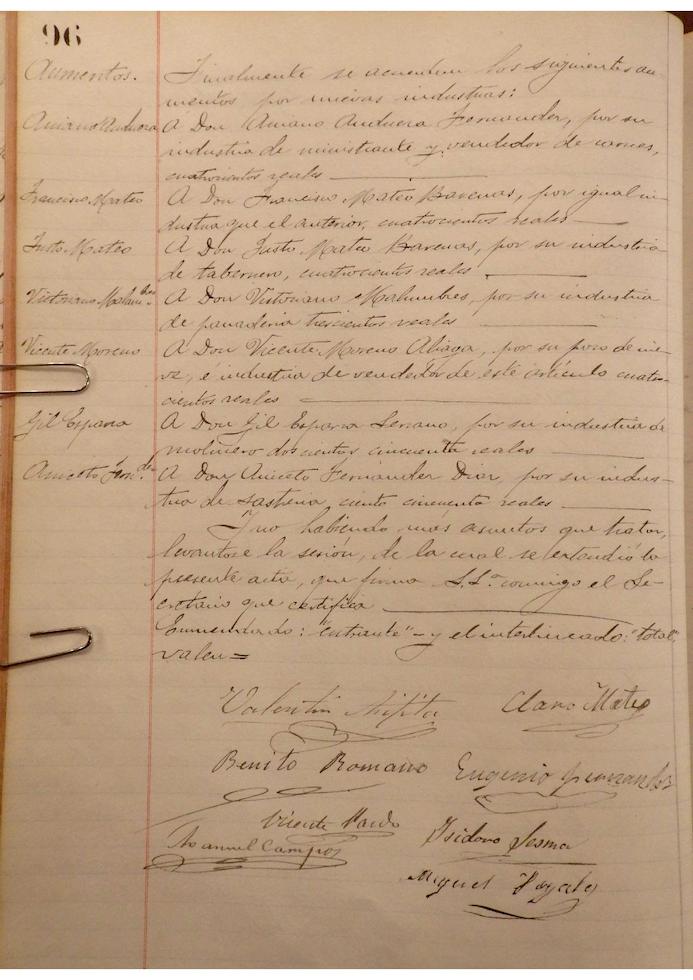 96
Aumentos. Finalmente se acuerdan los siguientes au-
mentos por nuevas industrias:
Amano Anduera A Don Amano Anduera Fernander, por su
industria de ministrante y vendedor de carnes,
cuatrocientos reales
Francisco Mateo A Don Francisco Mateo Barenas, por igual in-
dustria que el anterior, cuatrocientos reales
Justo Mateo A Don Justo Mateo Barenas, por su industria
de tabernero, cuatrocientos reales
Victoriano A Don Victoriano Malumbres, por su industria
de panaderia trescientos reales
Vicente Moreno A Don Vicente Moreno Aliaga, por su pozo de nie-
ve, é industria de vendedor de este artículo cuatro-
cientos reales
Gil Esparza A Don Gil Esparza Serrano, por su industria de
molinero doscientos cincuenta reales
Aniceto Fern.de A Don Aniceto Fernánder Diar, por su indus-
tria de sastreria, ciento cincuenta reales
Y no habiendo mas asuntos que tratar,
levantose la sesión, de la cual se extendió la
presente acta, que firma S.S.ª conmigo el Se-
cretario que certifica
Enmendado: "entrante" = y el interlineado: "total",
valen =
Valentin Claro Mateo
Benito Romano Eugenio
Vicente Pardo Isidoro Sesma
Manuel Campos
Miguel